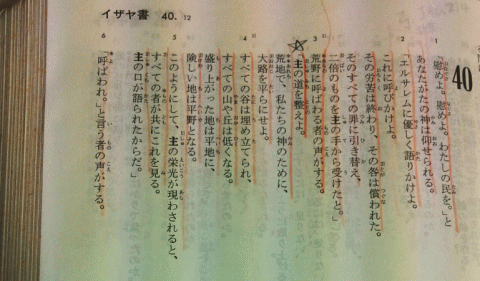 イザヤ書 40. 12
40
1 「慰めよ。慰めよ。わたしの民を。」と
あなたがたの神は仰せられる。
2 「エルサレムに優しく語りかけよ。
これに呼びかけよ。
その労苦は終わり、その咎は償われた。
そのすべての罪に引き替え、
二倍のものを主の手から受けたと。」
3 荒野に呼ばわる者の声がする。
「主の道を整えよ。
荒地で、私たちの神のために、
大路を平らにせよ。
4 すべての谷は埋め立てられ、
すべての山や丘は低くなる。
盛り上がった地は平地に、
険しい地は平野となる。
5 このようにして、主の栄光が現わされると、
すべての者が共にこれを見る。
主の口が語られたからだ。」
6 「呼ばわれ。」と言う者の声がする。